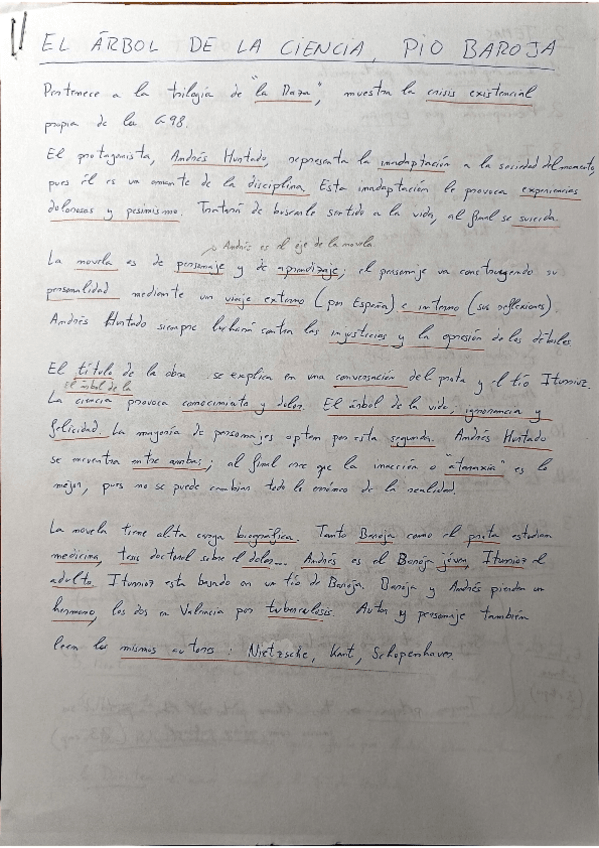 EL ÁRBOL DE LA CIENCIA, PIO BAROJA
Pertenece a la trilogía de "La Raza", muestra la crisis existencial
propia de la G98.
El protagonista, Andrés Hurtado, representa la inadaptación a la sociedad del momento,
pues él es un amante de la disciplina. Esta inadaptación le provoca experiencias
dolorosas y pesimismo. Tratará de buscarle sentido a la vida, al final se suicida.
Andrés es el eje de la novela.
La novela es de personaje y de aprendizaje; el personaje va construyendo su
personalidad mediante un viaje externo (por España) e interno (sus reflexiones).
Andrés Hurtado siempre luchará contra las injusticias y la opresión de los débiles.
El título de la obra se explica en una conversación del prota y el tío Iturrioz.
el árbol de la
La ciencia provoca conocimiento y dolor. El árbol de la vida, ignorancia y
felicidad. La mayoría de personajes optan por esta segunda. Andrés Hurtado
se encuentra entre ambas; al final cree que la inacción o "ataraxia" es lo
mejor, pues no se puede cambiar todo lo erróneo de la realidad.
La novela tiene alta carga biográfica. Tanto Baroja como el prota estudian
medicina, tesis doctoral sobre el dolor... Andrés es el Baroja jóven, Iturrioz el
adulto. Iturrioz está basado en un tío de Baroja. Baroja y Andrés pierden un
hermano, los dos en Valencia por tuberculosis. Autor y personaje también
leen los mismos autores: Nietzsche, Kant, Schopenhauer.